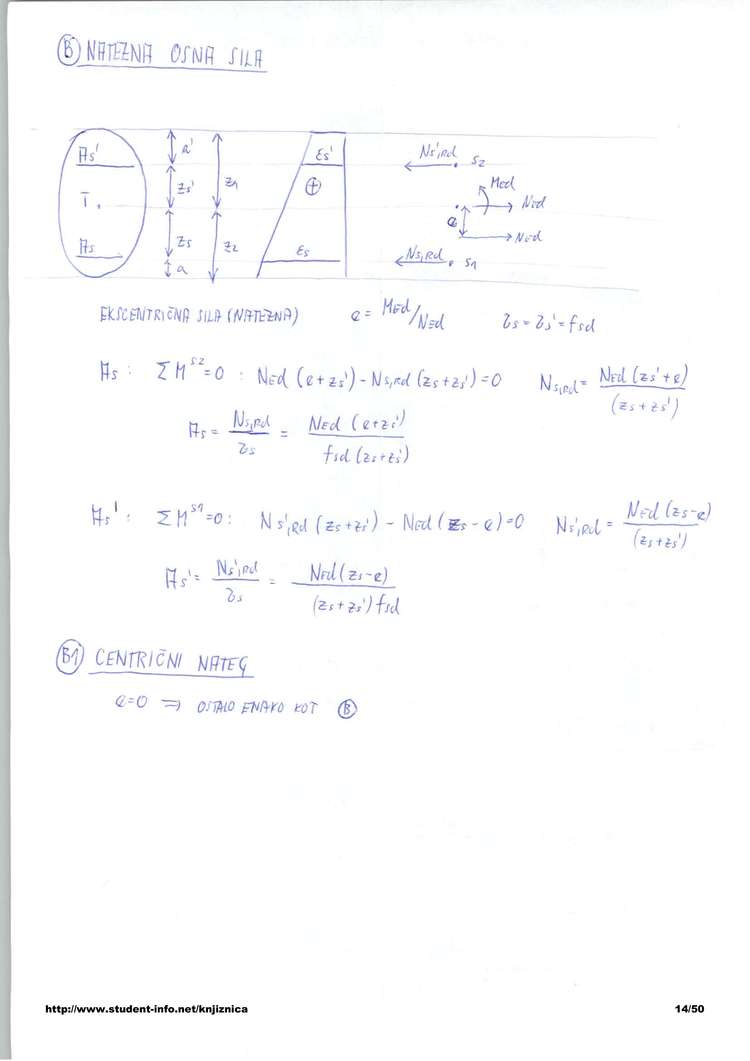 Ⓑ NATEZNA OSNA SILA
As' a' zs' z1 εs' Ns',Rd s2
T ⊕ Med Ned
As zs z2 εs e Ned
a Ns,Rd s1
EKSCENTRIČNA SILA (NATEZNA) e = MEd/NEd σs = σs' = fsd
As : ΣM^s2=0 : NEd (e+zs') - Ns,Rd (zs+zs') = 0 Ns,Rd = NEd (zs'+e) / (zs+zs')
As = Ns,Rd / σs = NEd (e+zs') / fsd (zs+zs')
As' : ΣM^s1=0 : Ns',Rd (zs+zs') - NEd (zs - e) = 0 Ns',Rd = NEd (zs-e) / (zs+zs')
As' = Ns',Rd / σs = NEd (zs-e) / (zs+zs') fsd
B1 CENTRIČNI NATEG
e=0 ⇒ OSTALO ENAKO KOT Ⓑ
http://www.student-info.net/knjiznica 14/50